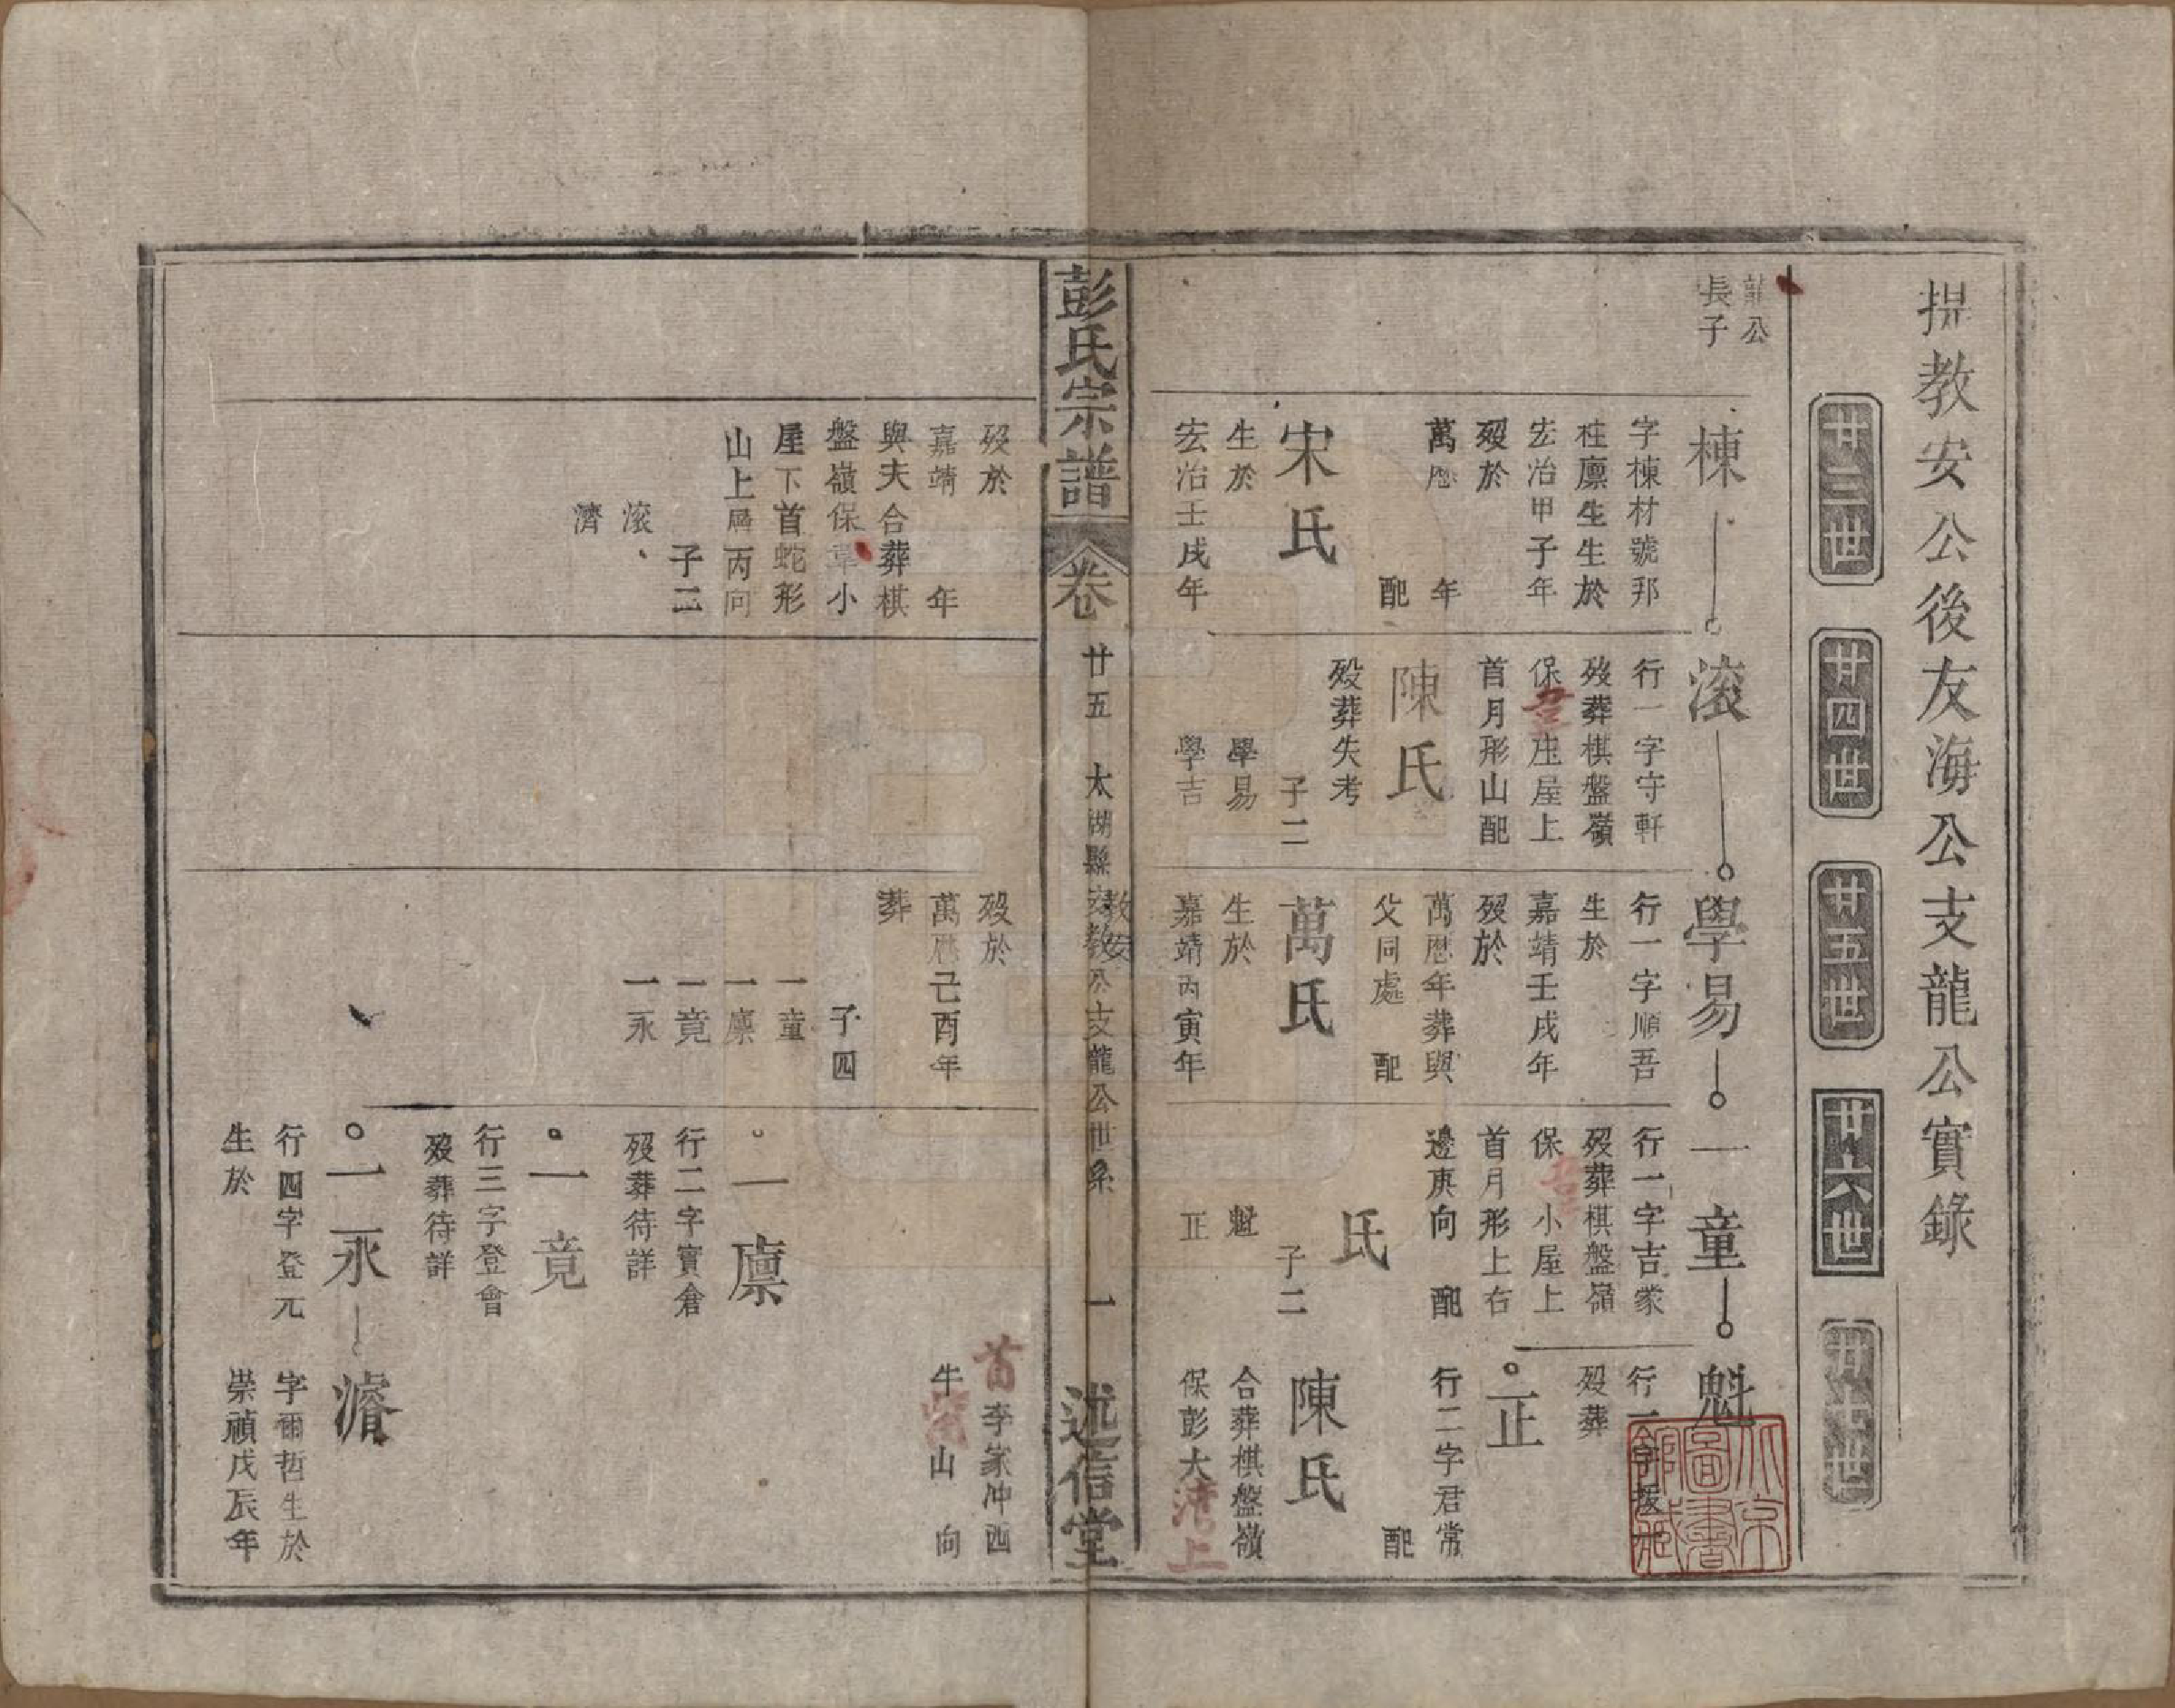 提教安公後友海公支龍公實錄
廿三世
廿四世
廿五世
廿六世
廿七世
龍公
長子
棟
字棟材號邦
柱廪生生於
宏冶甲子年
歿於
萬厯 年
配
宋氏
生於
宏冶壬戌年
滚
行一字守軒
歿葬棋盤嶺
保 庄屋上
首月形山配
陳氏
殁葬失考
子二
學易
學吉
學易
行一字順吾
生於
嘉靖壬戌年
歿於
萬厯年葬與
父同處 配
萬氏
生於
嘉靖丙寅年
一童
行一字吉蒙
歿葬棋盤嶺
保 小屋上
首月形上右
邊庚向 配
氏
子二
魁
正
魁
行一字
歿葬
正
行二字君常
配
陳氏
合葬棋盤嶺
保彭大湾上
北京
圖書
館藏
彭氏宗譜
卷
廿五
太湖縣安教公支龍公世系
教安
一
述信堂
歿於
嘉靖 年
與夫合葬棋
盤嶺保 小
屋下首蛇形
山上層丙向
子二
滚
濟
歿於
萬厯己酉年
葬
子四
一童
一廪
一竟
一永
一廪
行二字實倉
歿葬待詳
一竟
行三字登會
歿葬待詳
一永
行四字登元
生於
首李家冲西
牛 山 向
濬
字爾哲生於
崇禎戊辰年